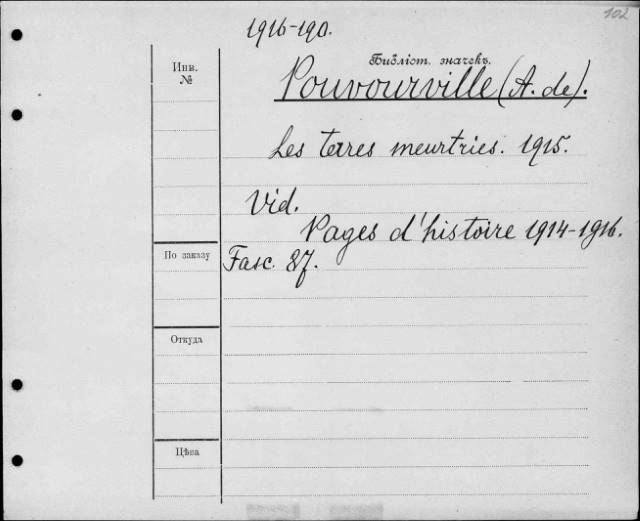 102
1916-190.
Инв.
№
Библіот. значекъ.
Pouvourville (A. de).
Les terres meurtries. 1915.
Vid.
Pages d'histoire 1914-1916.
По заказу
Fasc. 87.
Откуда
Цѣна